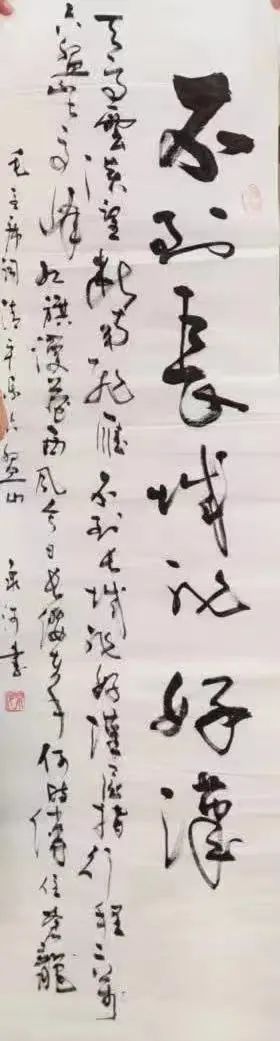 不到長城非好漢
天高雲淡望斷南飛雁不到长城非好漢屈指行程二万
六盤山上高峰红旗漫卷西风今日长纓在手何时缚住苍龍
毛主席词清平乐六盤山 书